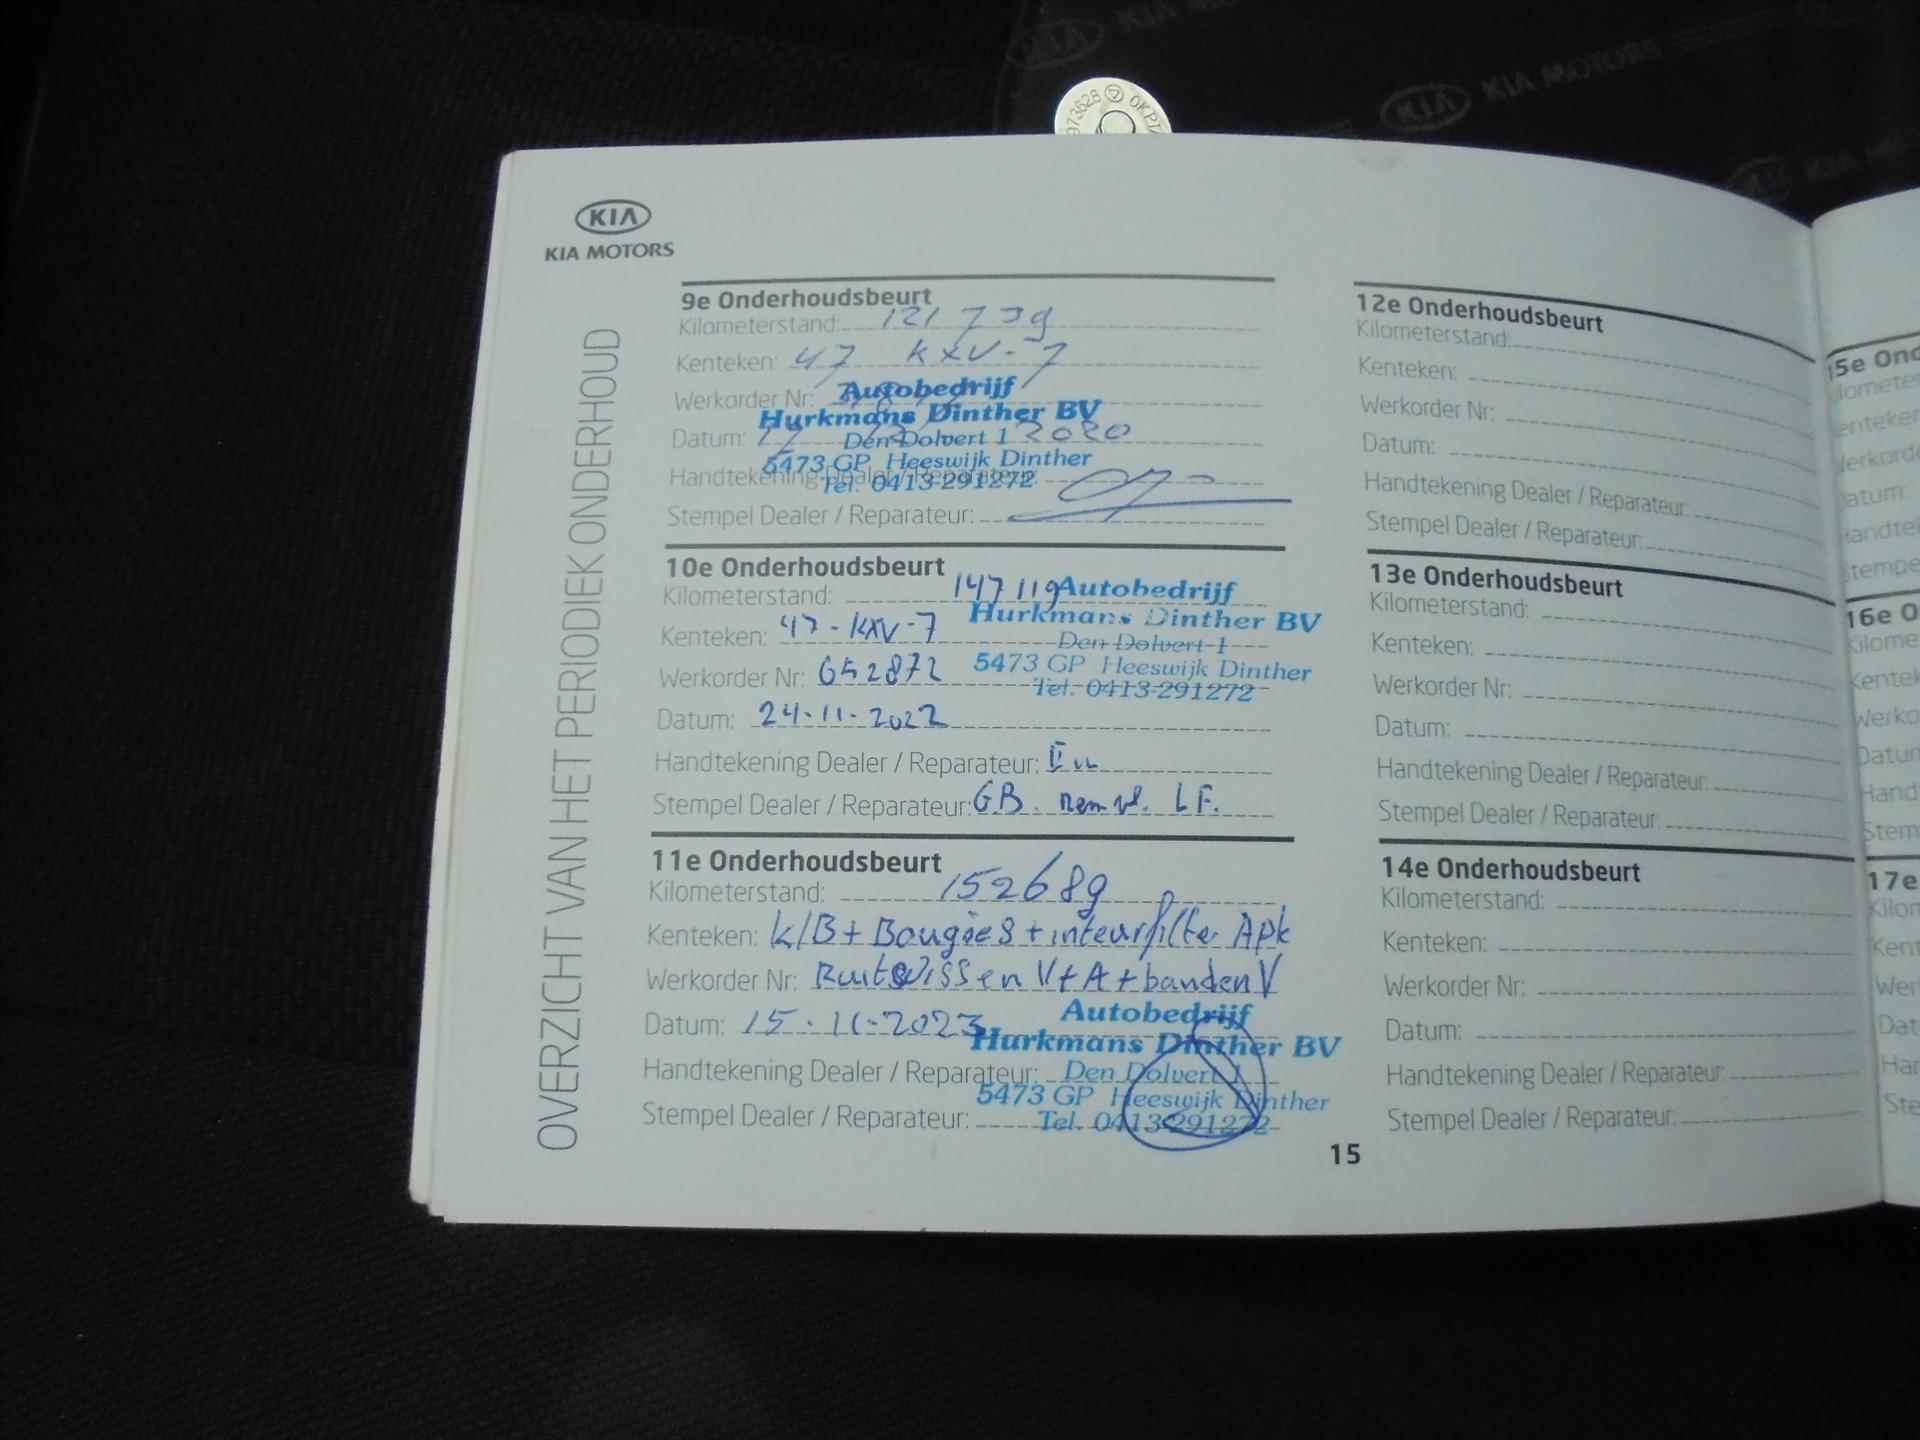 KIA MOTORS
KIA MOTORS
973628 OKPL
KIA
KIA MOTORS
OVERZICHT VAN HET PERIODIEK ONDERHOUD
9e Onderhoudsbeurt
Kilometerstand: 121739
Kenteken: 47 KXV-7
Werkorder Nr:
Autobedrijf
Hurkmans Dinther BV
Datum: 2020
Den Dolvert 1
5473 GP Heeswijk Dinther
Handtekening Dealer / Reparateur:
Tel. 0413-291272
Stempel Dealer / Reparateur:
10e Onderhoudsbeurt
Kilometerstand: 147 119
Autobedrijf
Hurkmans Dinther BV
Kenteken: 47-KXV-7
Den Dolvert 1
Werkorder Nr: 652872
5473 GP Heeswijk Dinther
Tel. 0413-291272
Datum: 24-11-2022
Handtekening Dealer / Reparateur:
Stempel Dealer / Reparateur: GB. LF.
11e Onderhoudsbeurt
Kilometerstand: 152689
Kenteken: K/B + Bougies + inteurfilter Apk
Werkorder Nr: Ruitewissen V+A + banden V
Datum: 15-11-2023
Autobedrijf
Hurkmans Dinther BV
Handtekening Dealer / Reparateur:
Den Dolvert 1
5473 GP Heeswijk Dinther
Stempel Dealer / Reparateur:
Tel. 0413-291272
15
12e Onderhoudsbeurt
Kilometerstand:
Kenteken:
Werkorder Nr:
Datum:
Handtekening Dealer / Reparateur:
Stempel Dealer / Reparateur:
13e Onderhoudsbeurt
Kilometerstand:
Kenteken:
Werkorder Nr:
Datum:
Handtekening Dealer / Reparateur:
Stempel Dealer / Reparateur:
14e Onderhoudsbeurt
Kilometerstand:
Kenteken:
Werkorder Nr:
Datum:
Handtekening Dealer / Reparateur:
Stempel Dealer / Reparateur:
15e Ond
16e O
17e